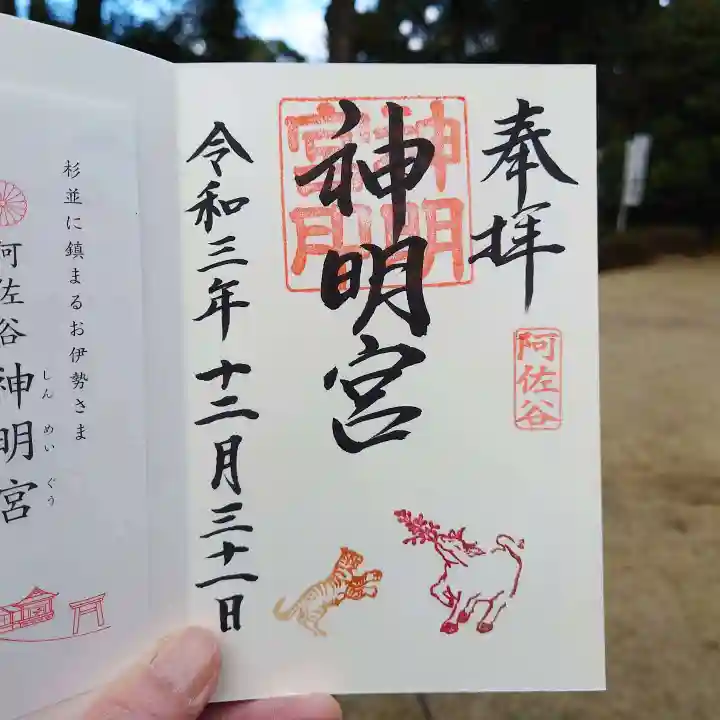 奉拝
阿佐谷
神明宮
神明宮印
令和三年十二月三十一日
杉並に鎮まるお伊勢さま
阿佐谷神明宮
しんめいぐう